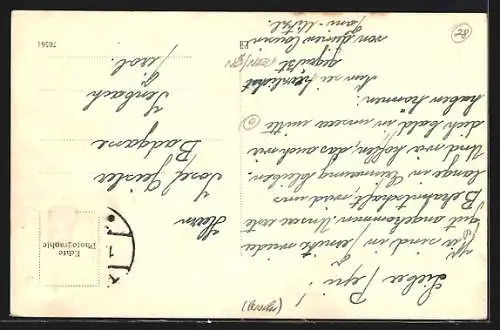 Lieber Pepi!
Wir sind in Jenitz wieder
gut angekommen. Unsere erste
Bekanntschaft, wird uns
lange in Erinnerung bleiben.
Und wir hoffen, das auch wir
dich bald in unserer mitte
haben können.
Nun sei herzlichst
gegrüßt
von deinen Cousin
Fam.
Herrn
Josef Geisler
Badgasse
Jenbach
Tirol.
Echte
Photographie
PR
76561
78